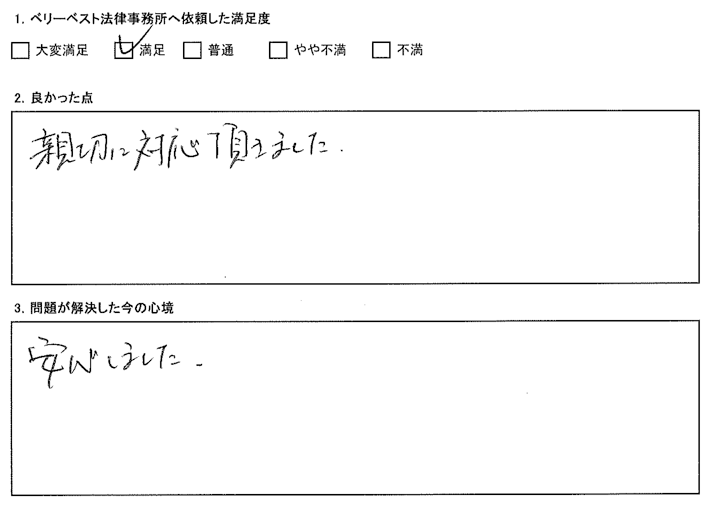 1. ベリーベスト法律事務所へ依頼した満足度
□ 大変満足 ☑ 満足 □ 普通 □ やや不満 □ 不満
2. 良かった点
親切に対応頂きました.
3. 問題が解決した今の心境
安心しました.